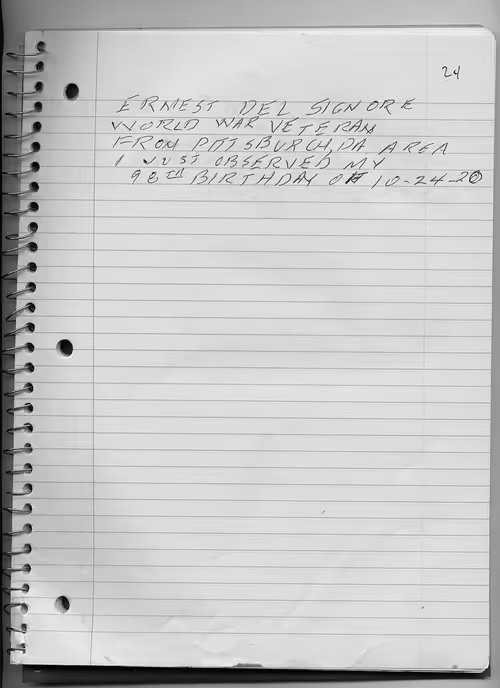 24
ERNEST DEL SIGNORE
WORLD WAR VETERAN
FROM PITTSBURGH, PA AREA
I JUST OBSERVED MY
98TH BIRTHDAY ON 10-24-20